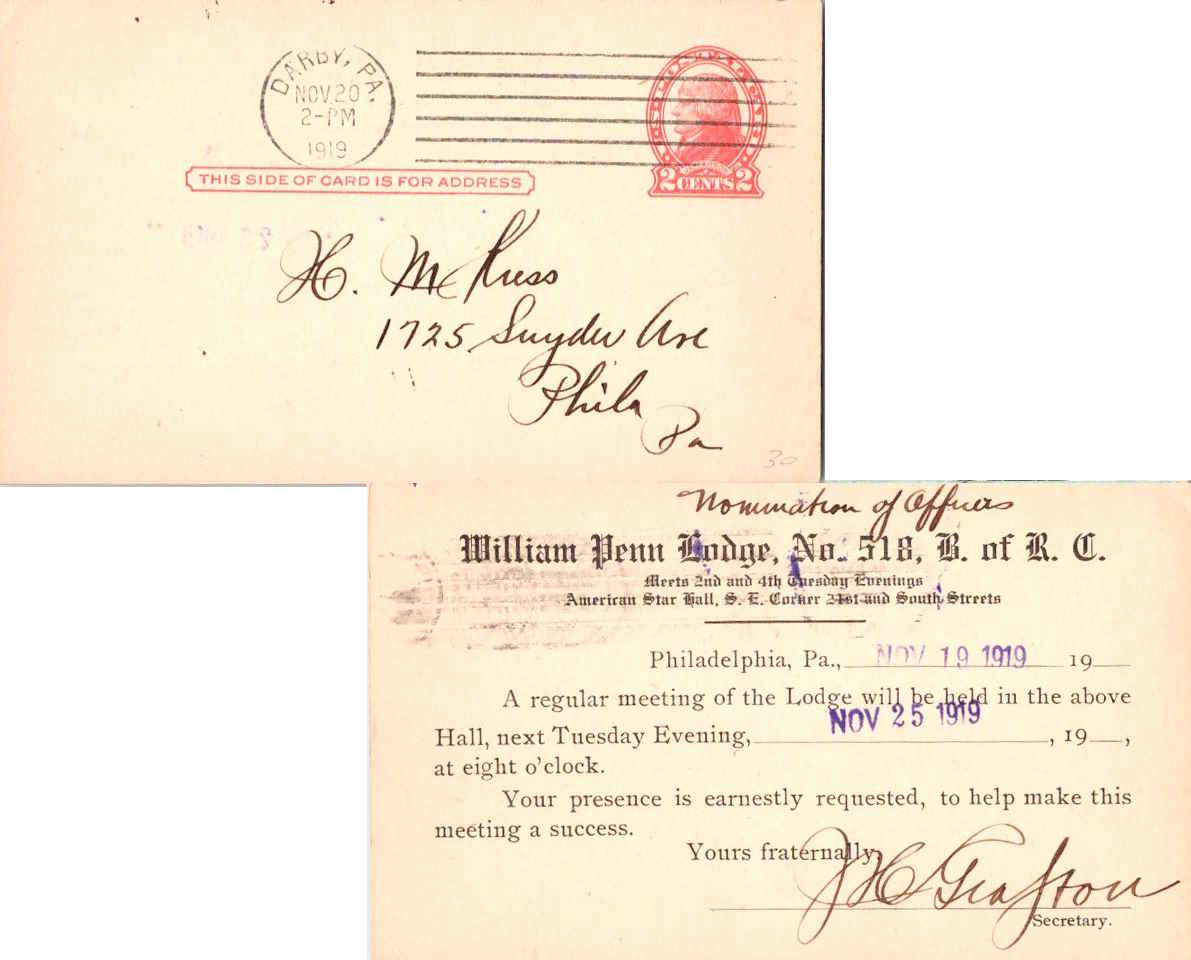 DARBY, PA.
NOV 20
2-PM
1919
2 CENTS 2
THIS SIDE OF CARD IS FOR ADDRESS
H. Mc Kuss
1725 Snyder Ave
Phila
Pa
30
Nomination of Officers
William Penn Lodge, No. 518, B. of R. C.
Meets 2nd and 4th Tuesday Evenings
American Star Hall, S. E. Corner 21st and South Streets
Philadelphia, Pa., NOV 19 1919 19
A regular meeting of the Lodge will be held in the above
Hall, next Tuesday Evening, NOV 25 1919, 19 ,
at eight o'clock.
Your presence is earnestly requested, to help make this
meeting a success.
Yours fraternally,
J H Grafton
Secretary.